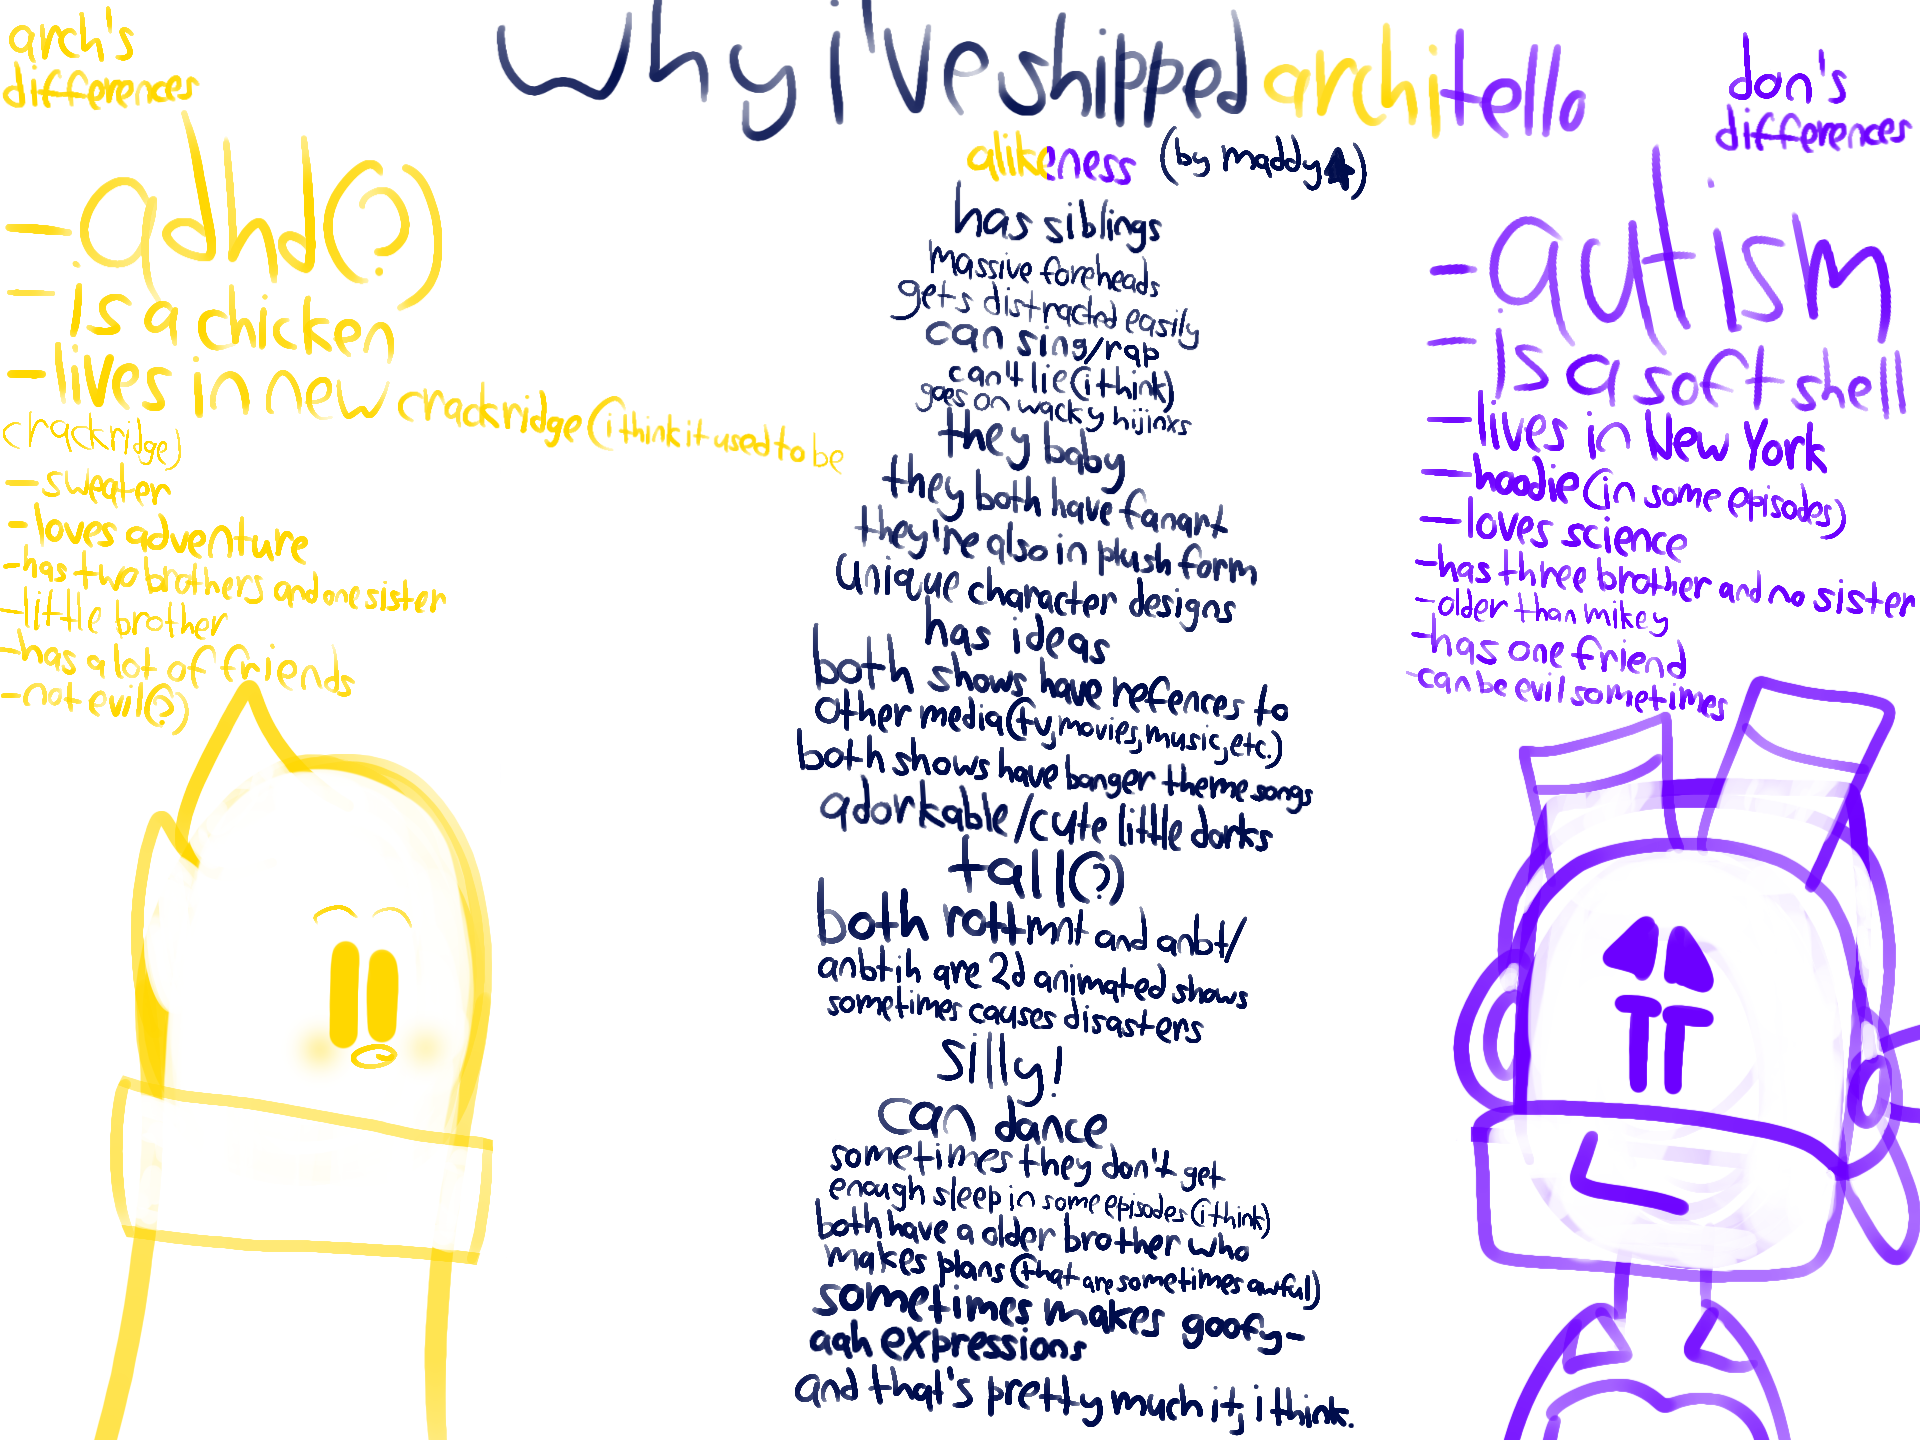 why i've shipped architello
(by maddy)
arch's
differences
-adhd(?)
-is a chicken
-lives in new crackridge (i think it used to be
crackridge)
-sweater
-loves adventure
-has two brothers and one sister
-little brother
-has a lot of friends
-not evil(?)
alikeness
has siblings
massive foreheads
gets distracted easily
can sing/rap
can't lie (i think)
goes on wacky hijinxs
they baby
they both have fanart
they're also in plush form
unique character designs
has ideas
both shows have refences to
other media (tv, movies, music, etc.)
both shows have banger theme songs
adorkable/cute little dorks
tall(?)
both rottmnt and anbt/
anbtih are 2d animated shows
sometimes causes disasters
silly!
can dance
sometimes they don't get
enough sleep in some episodes (i think)
both have a older brother who
makes plans (that are sometimes awful)
sometimes makes goofy-
aah expressions
and that's pretty much it, i think.
don's
differences
-autism
-is a soft shell
-lives in New York
-hoodie (in some episodes)
-loves science
-has three brother and no sister
-older than mikey
-has one friend
-can be evil sometimes